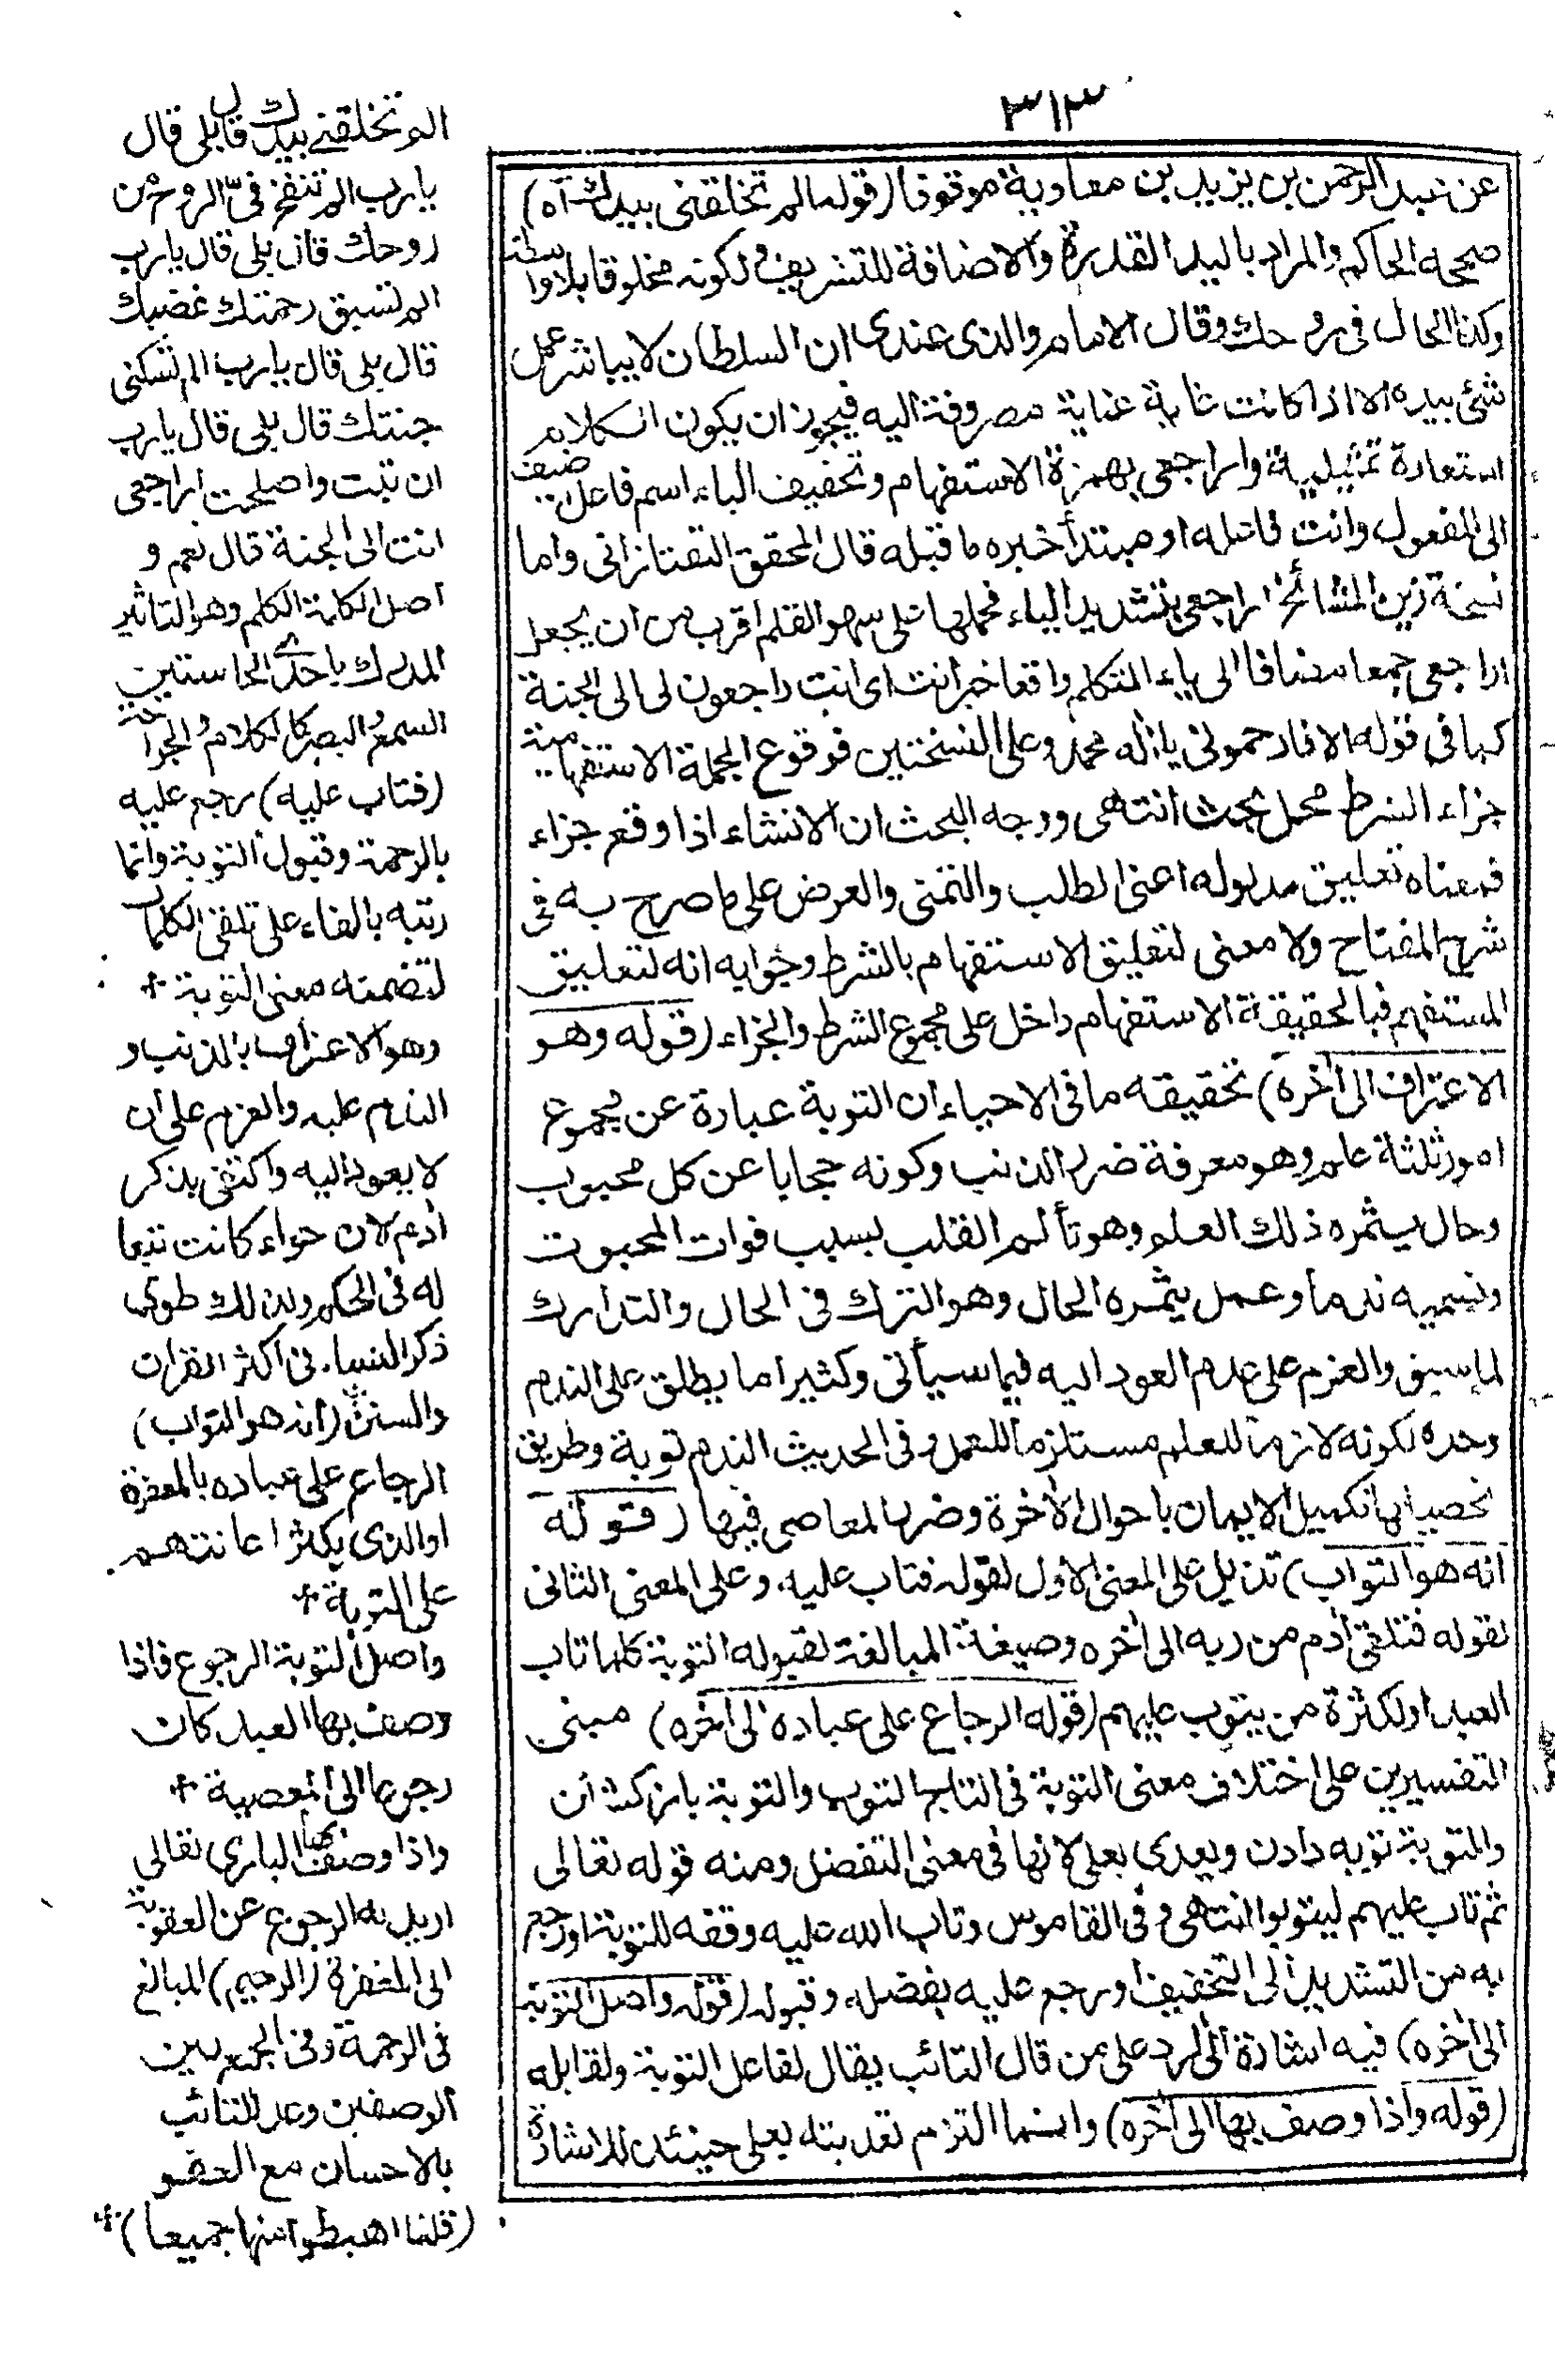 ٣١٣
عن عبد الرحمن بن يزيد بن معاوية موقوفا (قوله الم تخلقنى بيدك آه)
صححه الحاكم والمراد باليد القدرة والاضافة للتشريف ولكونه مخلوقا بلا واسطة
وكذا الحال فى روحك وقال الامام والذى عندى ان السلطان لا يباشر عمل
شئ بيده الا اذا كانت غاية عناية مصروفة اليه فيجوز ان يكون الكلام
استعارة تمثيلية واراجعى بهمزة الاستفهام وتخفيف الياء اسم فاعل اضيف
الى المفعول وانت فاعله او مبتدأ خبره ما قبله قال المحقق التفتازانى واما
نسخة زين المشائخ اراجعى بتشديد الياء فحملها على سهو القلم اقرب من ان يجعل
اراجعى جمعا مضافا الى ياء المتكلم واقعا خبر انت اى انت راجعون لى الى الجنة
كما فى قوله الا فارحمونى يا اله محمد وعلى النسختين فوقوع الجملة الاستفهامية
جزاء الشرط محل بحث انتهى ووجه البحث ان الانشاء اذا وقع جزاء
فمعناه تعليق مدلوله اعنى الطلب والتمنى والعرض على ما صرح به فى
شرح المفتاح ولا معنى لتعليق الاستفهام بالشرط وجوابه انه لتعليق
المستفهم فبالحقيقة الاستفهام داخل على مجموع الشرط والجزاء (قوله وهو
الاعتراف الى أخره) تحقيقه ما فى الاحياء ان التوبة عبارة عن مجموع
امور ثلثة علم وهو معرفة ضرر الذنب وكونه حجابا عن كل محبوب
وحال يثمره ذلك العلم وهو تألم القلب بسبب فوات المحبوب
ونسميه ندما وعمل يثمره الحال وهو الترك فى الحال والتدارك
لما سبق والعزم على عدم العود اليه فيما سيأتى وكثيرا ما يطلق على الندم
وحده لكونه لازما للعلم مستلزما للعمل وفى الحديث الندم توبة وطريق
تحصيلها تكميل الايمان باحوال الأخرة وضرر المعاصى فيها (قوله
انه هو التواب) تذييل على المعنى الاول لقوله فتاب عليه وعلى المعنى الثانى
لقوله فتلقى أدم من ربه الى أخره وصيغة المبالغة لقبوله التوبة كلما تاب
العبد او لكثرة من يتوب عليهم (قوله الرجاع على عباده الى أخره) مبنى
التفسيرين على اختلاف معنى التوبة فى التاج التوب والتوبة بازكشتن
والتوبة توبه دادن ويعدى بعلى لانها فى معنى التفضل ومنه قوله تعالى
ثم تاب عليهم ليتوبوا انتهى وفى القاموس وتاب الله عليه وفقه للتوبة او رجع
به من التشديد الى التخفيف او رجع عليه بفضله وقبوله (قوله واصل التوبة
الى أخره) فيه اشارة الى الرد على من قال التائب يقال لفاعل التوبة ولقابله
(قوله واذا وصف بها الى أخره) وانما التزم تعديته بعلى حينئذ للاشارة
الم تخلقنى بيدك قال بلى قال
يا رب الم تنفخ فىّ الروح من
روحك قال بلى قال يا رب
الم تسبق رحمتك غضبك
قال بلى قال يا رب الم تسكنى
جنتك قال بلى قال يا رب
ان تبت واصلحت اراجعى
انت الى الجنة قال نعم و
اصل الكلمة الكلم وهو التاثير
المدرك باحدى الحاستين
السمع والبصر كالكلام والجراحة
(فتاب عليه) رجع عليه
بالرحمة وقبول التوبة وانما
رتبه بالفاء على تلقى الكلمات
لتضمنه معنى التوبة
وهو الاعتراف بالذنب و
الندم عليه والعزم على ان
لا يعود اليه واكتفى بذكر
أدم لان حواء كانت تبعا
له فى الحكم ولذلك طوى
ذكر النساء فى اكثر القرأن
والسنن (انه هو التواب)
الرجاع على عباده بالمغفرة
او الذى يكثر اعانتهم
على التوبة
واصل التوبة الرجوع فاذا
وصف بها العبد كان
رجوعا الى المعصية
واذا وصف بها البارى تعالى
اريد به الرجوع عن العقوبة
الى المغفرة (الرحيم) المبالغ
فى الرحمة وفى الجمع بين
الوصفين وعد للتائب
بالاحسان مع العفو
(قلنا اهبطوا منها جميعا)